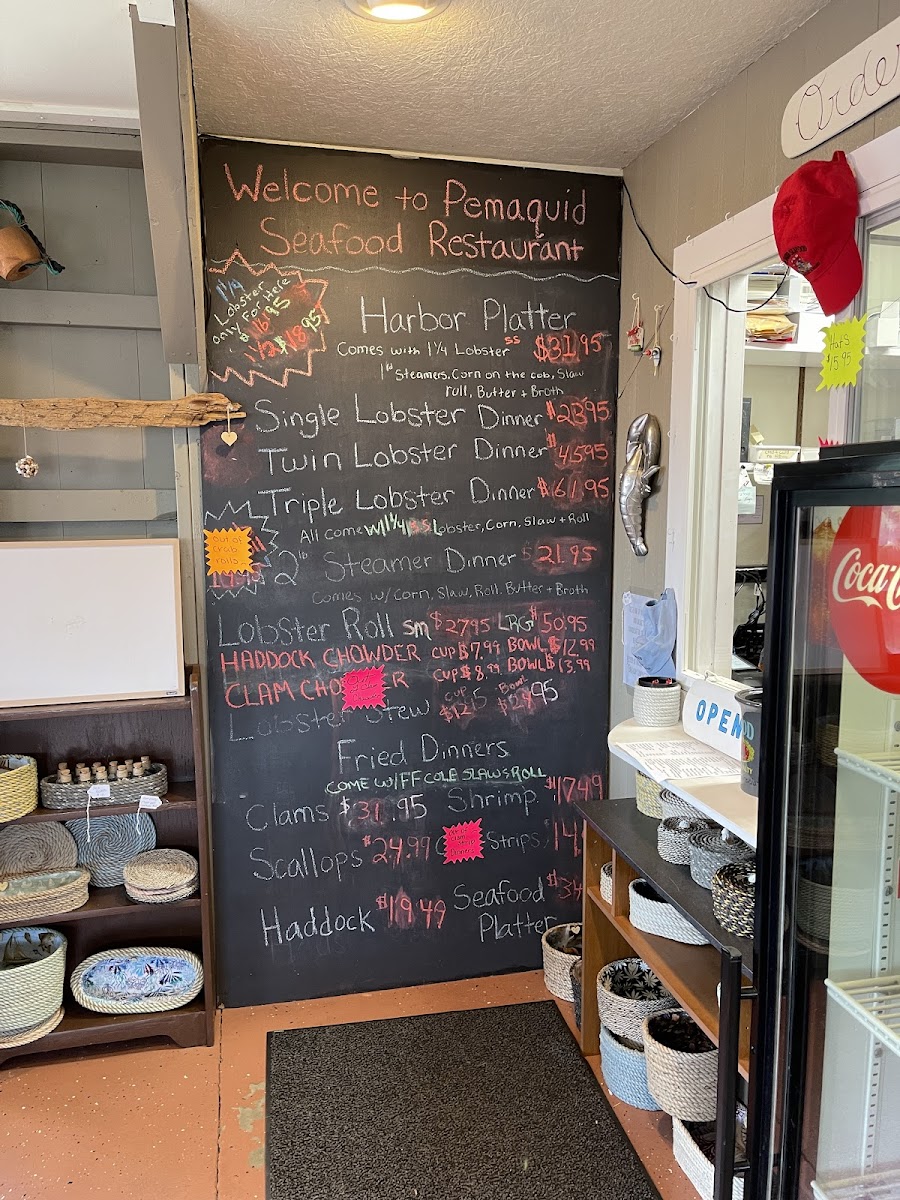 Welcome to Pemaquid
Seafood Restaurant
1 1/4
Lobster
only For Here
$18.95
Harbor Platter
Comes with 1 1/4 Lobster SS $31.95
1 lb Steamers, Corn on the cob, Slaw
roll, Butter + Broth
Single Lobster Dinner $23.95
Twin Lobster Dinner $45.95
Triple Lobster Dinner $61.95
All come w/1 1/4 S.S Lobster, Corn, Slaw + Roll
out of
crab
rolls
2 lb Steamer Dinner $21.95
Comes w/Corn, Slaw, Roll, Butter + Broth
Lobster Roll sm $27.95 LRG $50.95
HADDOCK CHOWDER CUP $7.99 BOWL $12.99
CLAM CHO R CUP $8.99 BOWL $13.99
Lobster Stew CUP Bowl
Fried Dinners
COME W/FF COLE SLAW & ROLL
Clams $31.95 Shrimp $17.49
Scallops $24.99 Strips $14
Haddock $19.49 Seafood $34
Platter
Order
HATS
$15.95
OPEN
Coca-C